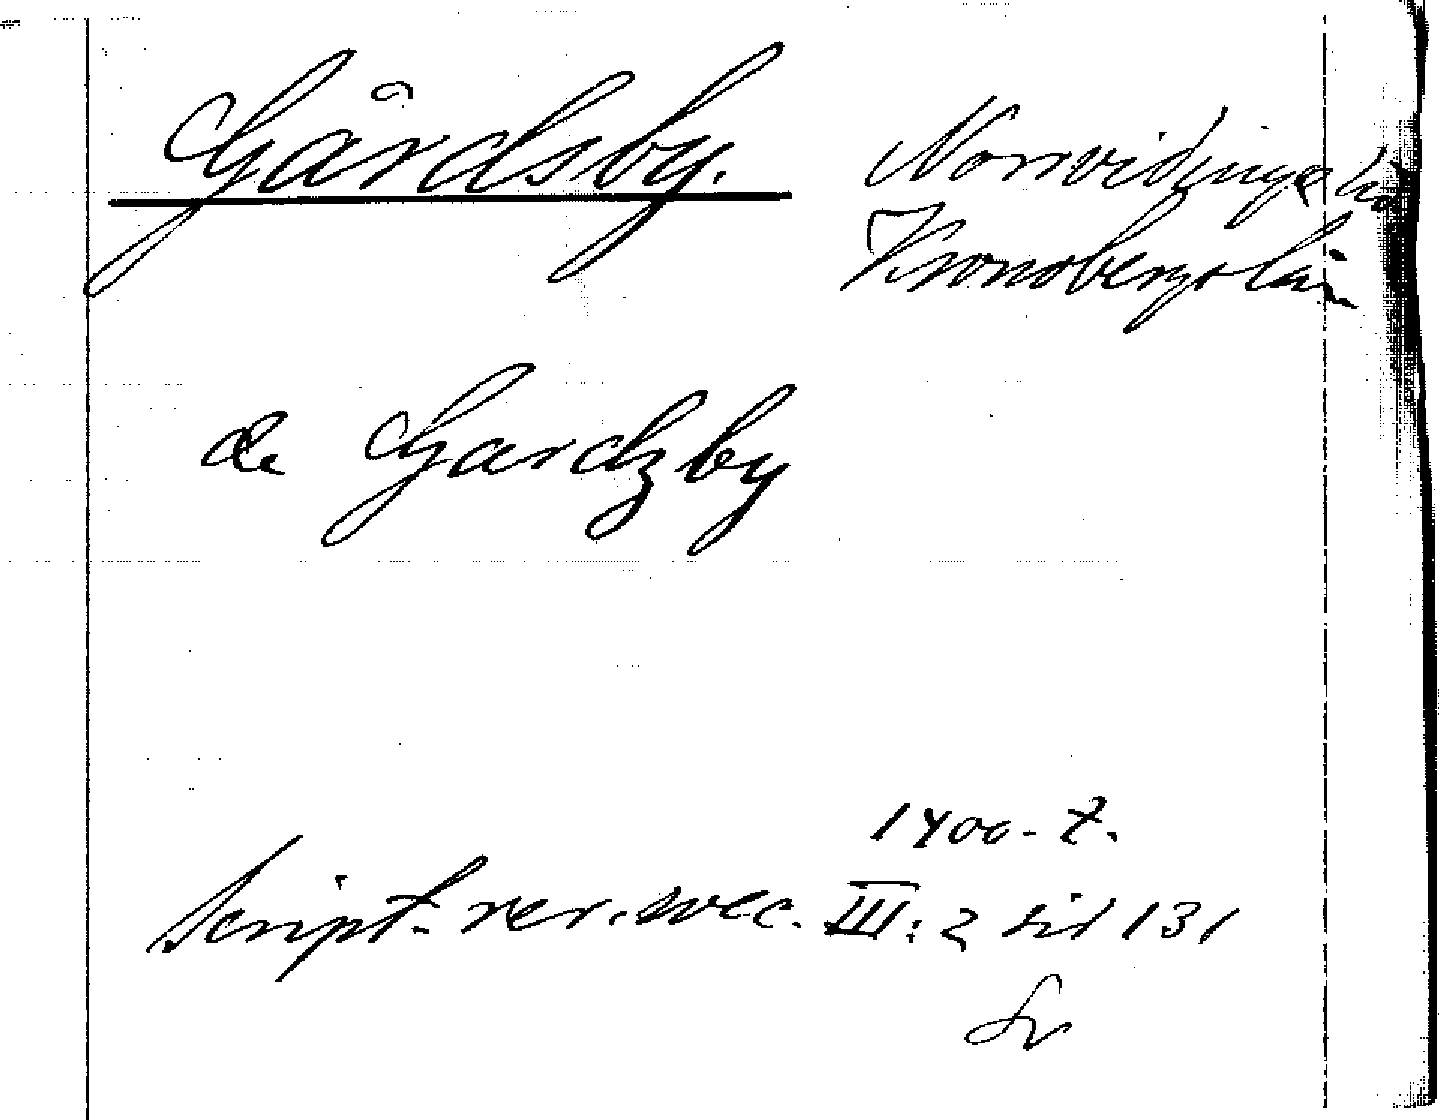 Gårdsby.
Norrvidinge hd
Kronobergs län
de Gardzby
1400-t.
Script. rer. svec. III: 2 sid 131